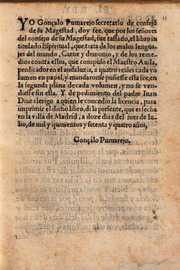 YO Gonçalo Pumarejo secretario de consejo
de su Magestad, doy fee, que por los señores
del consejo de su Magestad, fue tassado, el libro in
titulado Espiritual, que trata de los malos lenguajes
del mundo, Carne y demonio, y de los remedios
contra ellos, que compuso el Maestro Auila,
predicador en el andaluzia, a quatro reales cada volumen
en papel, y mandaronse pusiesse esta fee, en
la segunda plana de cada volumen, y no se vendiesse
sin ella. Y de pedimiento del padre Juan
Diaz clerigo a quien se concedio la licencia, para
imprimir el dicho libro, di la presente, que es fecha
en la villa de Madrid, a doze dias del mes de Iulio,
de mil y quinientos y setenta y quatro años,
Gonçalo Pumarejo.